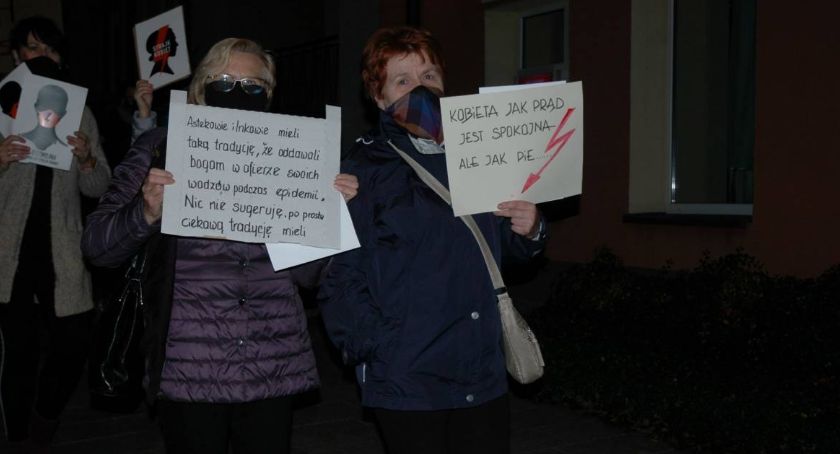 STRAJK
KOBIET
Astekowie i Inkowie mieli
taką tradycję, że oddawali
bogom w ofierze swoich
wodzów podczas epidemii.
Nic nie sugeruję, po prostu
ciekawą tradycję mieli
KOBIETA JAK PRĄD
JEST SPOKOJNA
ALE JAK PIE.....